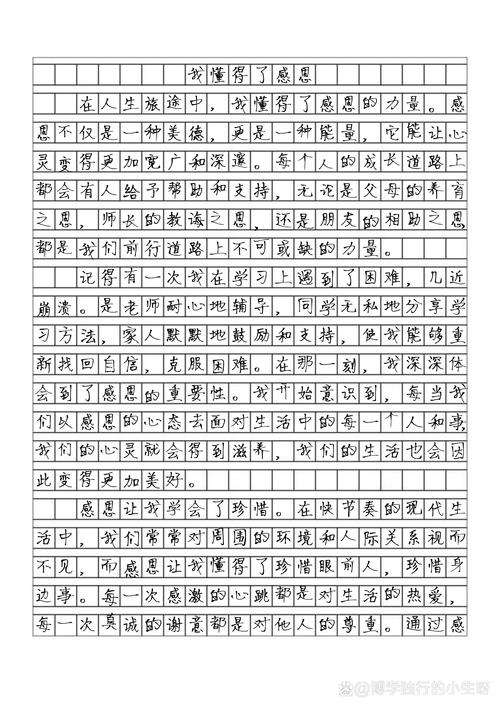 我懂得了感恩
在人生旅途中，我懂得了感恩的力量。感
恩不仅是一种美德，更是一种能量，它能让心
灵变得更加宽广和深邃。每个人的成长道路上
都会有人给予帮助和支持，无论是父母的养育
之恩，师长的教诲之恩，还是朋友的相助之恩，
都是我们前行道路上不可或缺的力量。
记得有一次我在学习上遇到了困难，几近
崩溃。是老师耐心地辅导，同学无私地分享学
习方法，家人默默地鼓励和支持，使我能够重
新找回自信，克服困难。在那一刻，我深深体
会到了感恩的重要性。我开始意识到，每当我
们以感恩的心态去面对生活中的每一个人和事，
我们的心灵就会得到滋养，我们的生活也会因
此变得更加美好。
感恩让我学会了珍惜。在快节奏的现代生
活中，我们常常对周围的环境和人际关系视而
不见，而感恩让我懂得了珍惜眼前人，珍惜身
边事。每一次感激的心跳都是对生活的热爱，
每一次真诚的谢意都是对他人的尊重。通过感
@博学独行的小生呀